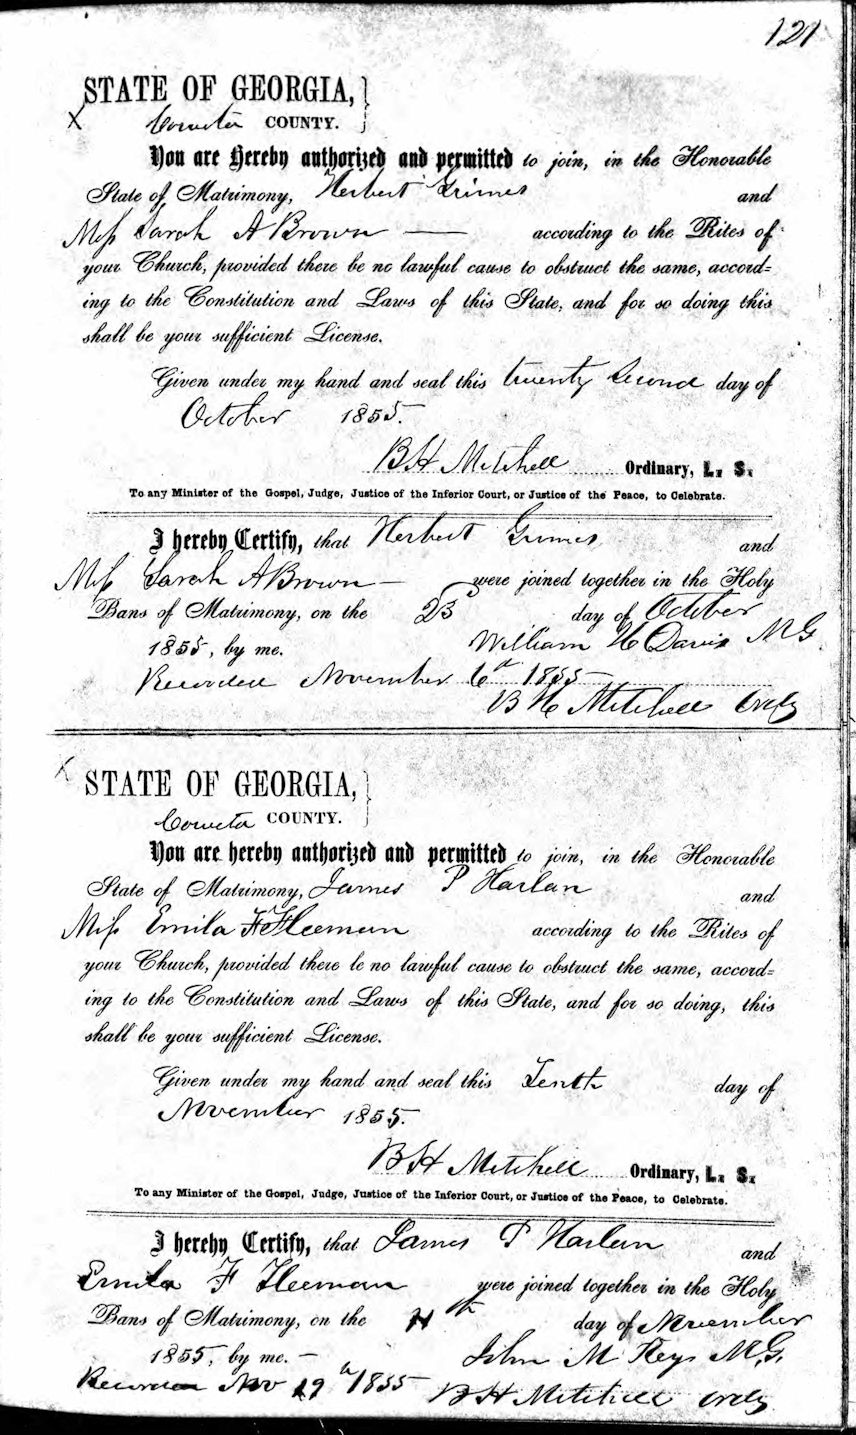 121
STATE OF GEORGIA,
X Coweta COUNTY.
You are Hereby authorized and permitted to join, in the Honorable
State of Matrimony, Herbert Grimes and
Miss Sarah A Brown — according to the Rites of
your Church, provided there be no lawful cause to obstruct the same, accord=
ing to the Constitution and Laws of this State, and for so doing this
shall be your sufficient License.
Given under my hand and seal this twenty Second day of
October 1855.
B H Mitchell Ordinary, L. S.
To any Minister of the Gospel, Judge, Justice of the Inferior Court, or Justice of the Peace, to Celebrate.
I hereby Certify, that Herbert Grimes and
Miss Sarah A Brown — were joined together in the Holy
Bans of Matrimony, on the 23 day of October
1855, by me. William H Davis M G
Recorded November 6th 1855
B H Mitchell Ordy
X STATE OF GEORGIA,
Coweta COUNTY.
You are hereby authorized and permitted to join, in the Honorable
State of Matrimony, James P Harlan and
Miss Emila F Fleeman according to the Rites of
your Church, provided there be no lawful cause to obstruct the same, accord=
ing to the Constitution and Laws of this State, and for so doing, this
shall be your sufficient License.
Given under my hand and seal this Tenth day of
November 1855.
B H Mitchell Ordinary, L. S.
To any Minister of the Gospel, Judge, Justice of the Inferior Court, or Justice of the Peace, to Celebrate.
I hereby Certify, that James P Harlan and
Emila F Fleeman were joined together in the Holy
Bans of Matrimony, on the 11th day of November
1855, by me. — John M Key M.G.
Recorded Nov 19th 1855 B H Mitchell Ordy